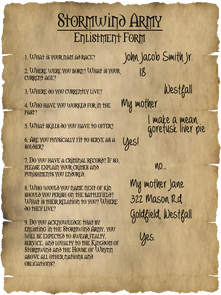 Stormwind Army
Enlistment Form
1. What is your name & race?
John Jacob Smith Jr.
2. Where were you born? What is your
current age?
18
3. Where do you currently live?
Westfall
4. Who have you worked for, in the
past?
My mother
5. What skills do you have to offer?
I make a mean
goretusk liver pie
6. Are you physically fit to serve as a
soldier?
Yes!
7. Do you have a criminal record? If so,
please explain your crimes and
punishments endured.
no..
8. Who should you name next of kin
should you perish on the battlefield?
What is their relation to you? Where
do they live?
My mother Jane
322 Mason Rd.
Goldfield, Westfall
9. Do you acknowledge that by
enlisting in the Stormwind Army, you
will be expected to swear fealty,
service, and loyalty to the Kingdom of
Stormwind and the House of Wrynn
above all other nations and
obligations?
Yes